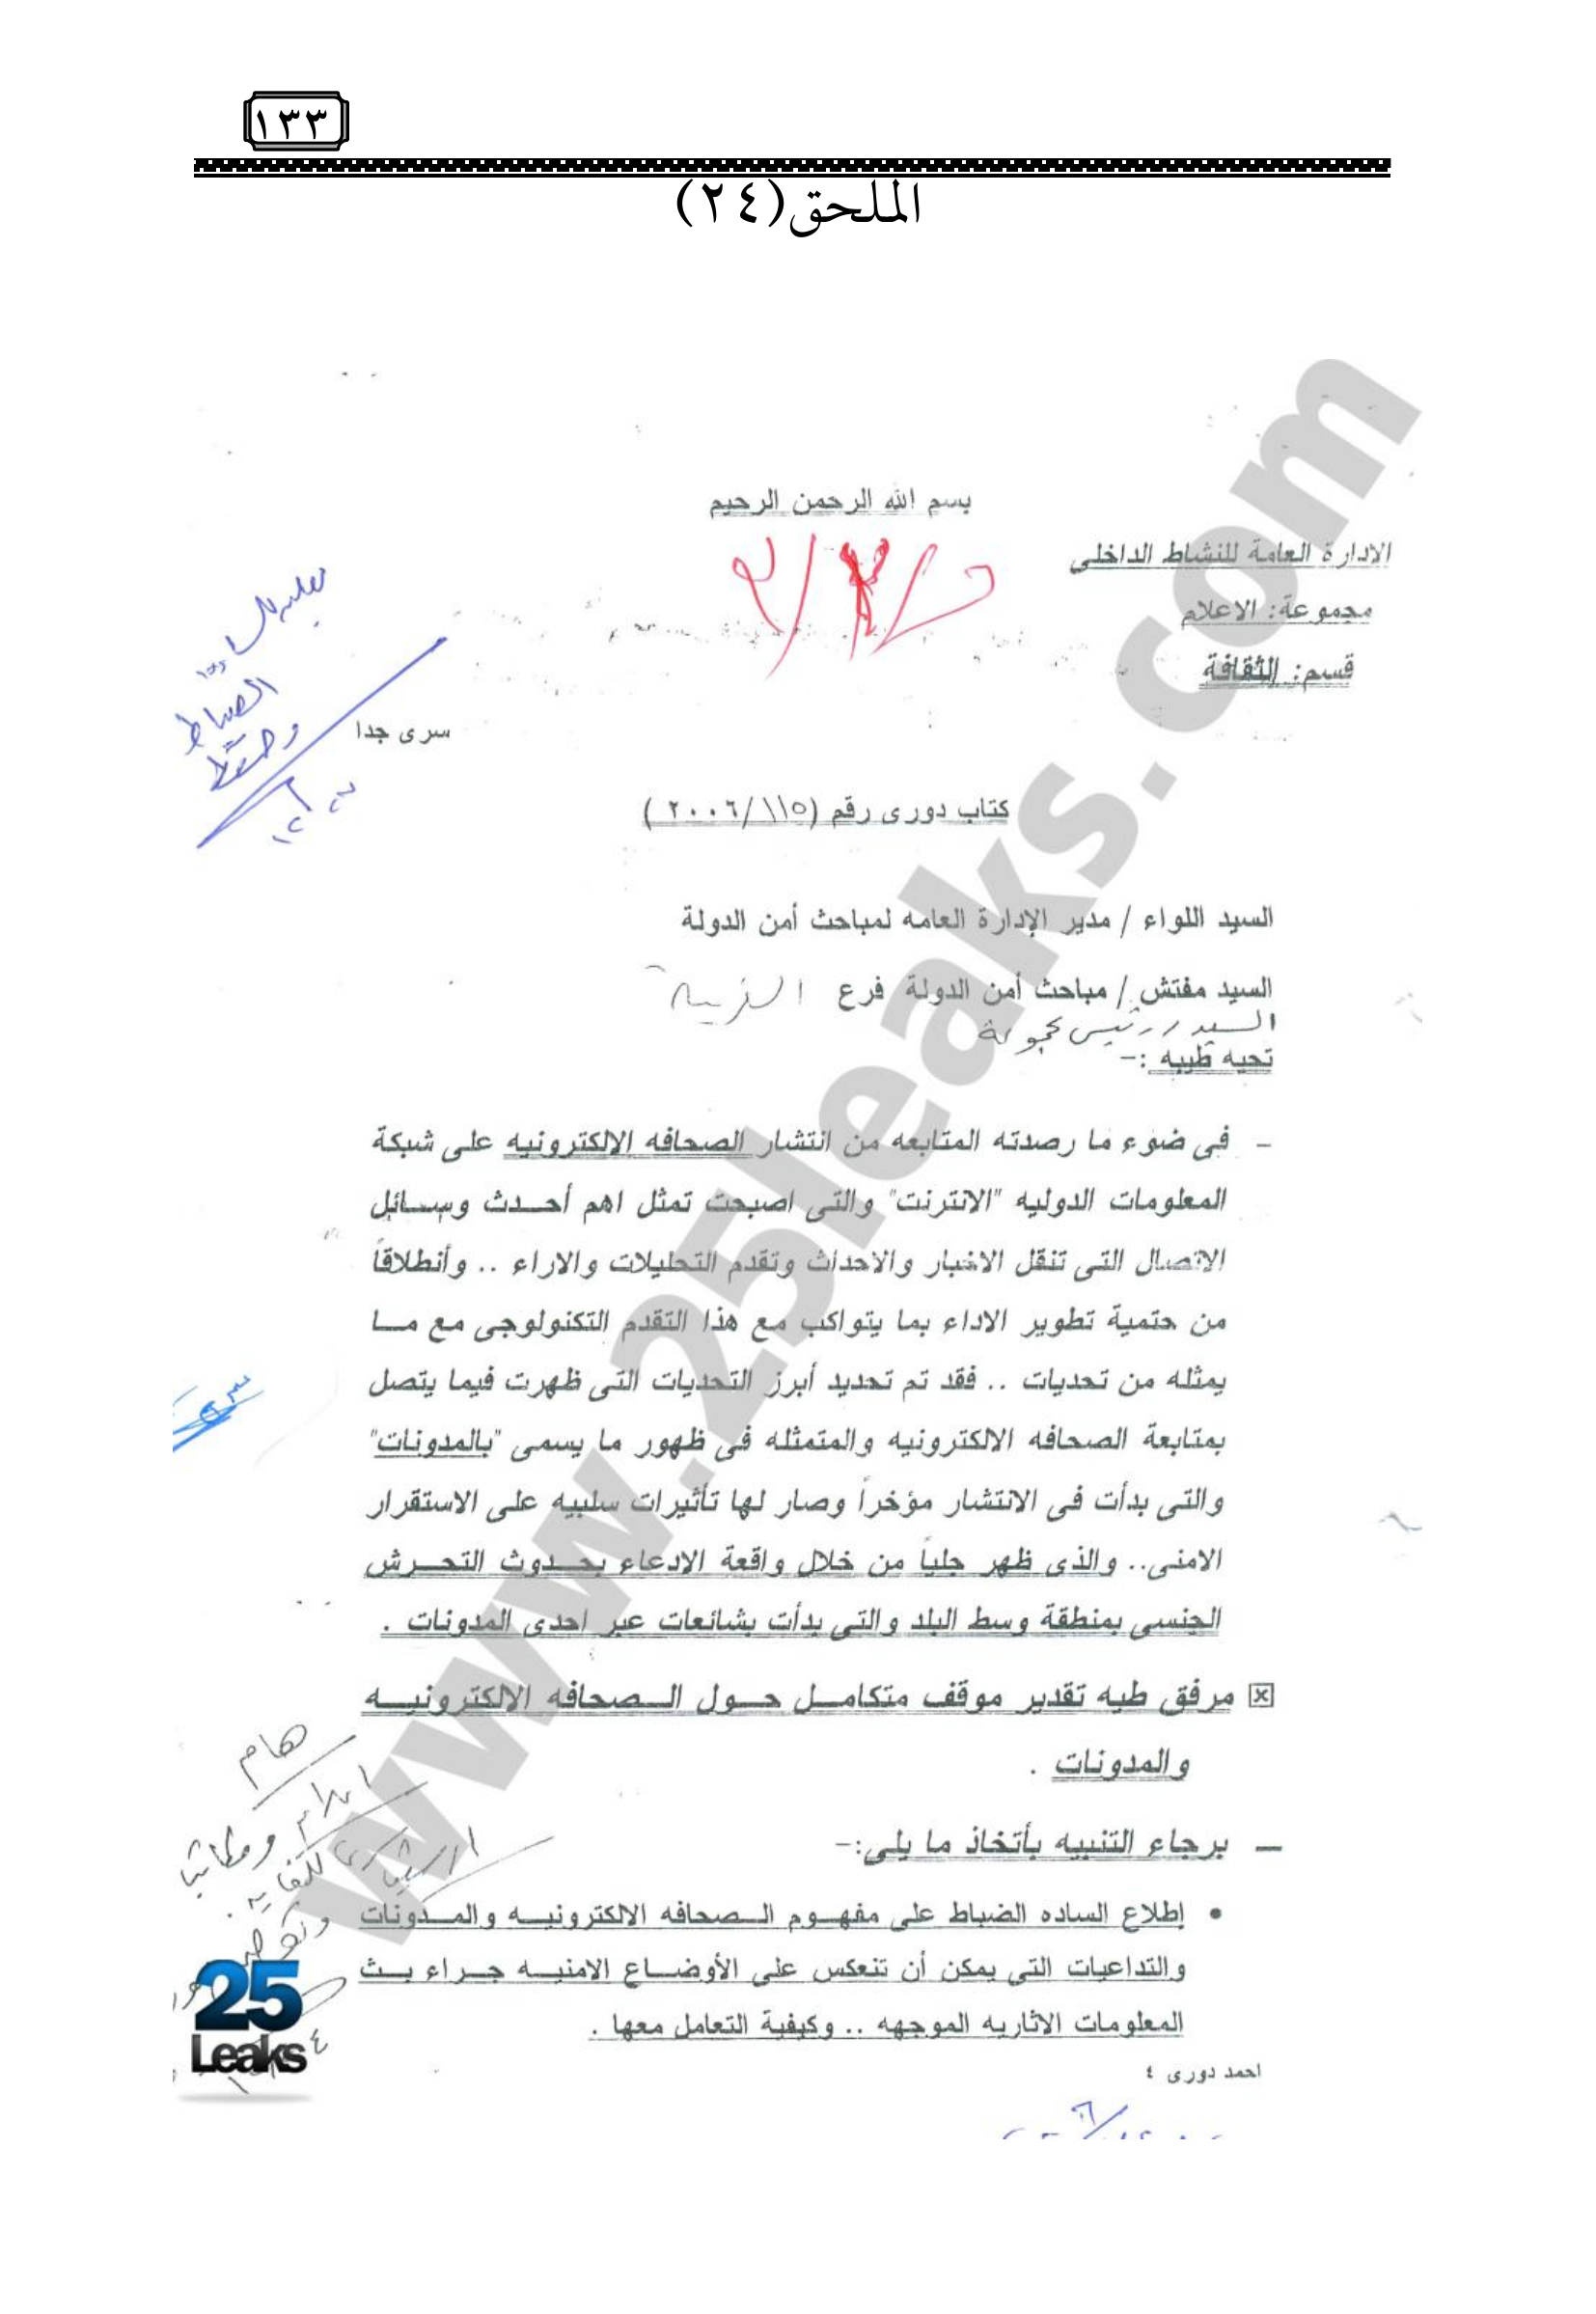 ١٣٣
الملحق(٢٤)
بسم الله الرحمن الرحيم
الادارة العامة للنشاط الداخلى
مجموعة: الاعلام
قسم: الثقافة
الضباط
سرى جدا
كتاب دورى رقم (١١٥/ ٢٠٠٦ )
السيد اللواء / مدير الإدارة العامه لمباحث أمن الدولة
السيد مفتش / مباحث أمن الدولة فرع
السيد / رئيس مجموعة
تحيه طيبه :-
- فى ضوء ما رصدته المتابعه من انتشار الصحافه الإلكترونيه على شبكة
المعلومات الدوليه "الانترنت" والتى اصبحت تمثل اهم أحدث وسائل
الاتصال التى تنقل الاخبار والاحداث وتقدم التحليلات والاراء .. وأنطلاقاً
من حتمية تطوير الاداء بما يتواكب مع هذا التقدم التكنولوجى مع ما
يمثله من تحديات .. فقد تم تحديد أبرز التحديات التى ظهرت فيما يتصل
بمتابعة الصحافه الالكترونيه والمتمثله فى ظهور ما يسمى "بالمدونات"
والتى بدأت فى الانتشار مؤخراً وصار لها تأثيرات سلبيه على الاستقرار
الامنى.. والذى ظهر جلياً من خلال واقعة الإدعاء بحدوث التحرش
الجنسى بمنطقة وسط البلد والتى بدأت بشائعات عبر احدى المدونات .
مرفق طيه تقدير موقف متكامل حول الصحافه الالكترونيه
والمدونات .
هام
– برجاء التنبيه بأتخاذ ما يلى:-
• إطلاع الساده الضباط على مفهوم الصحافه الالكترونيه والمدونات
والتداعيات التى يمكن أن تنعكس على الأوضاع الامنيه جراء بث
المعلومات الاثاريه الموجهه .. وكيفية التعامل معها .
احمد دورى ٤
25
Leaks
www.25leaks.com